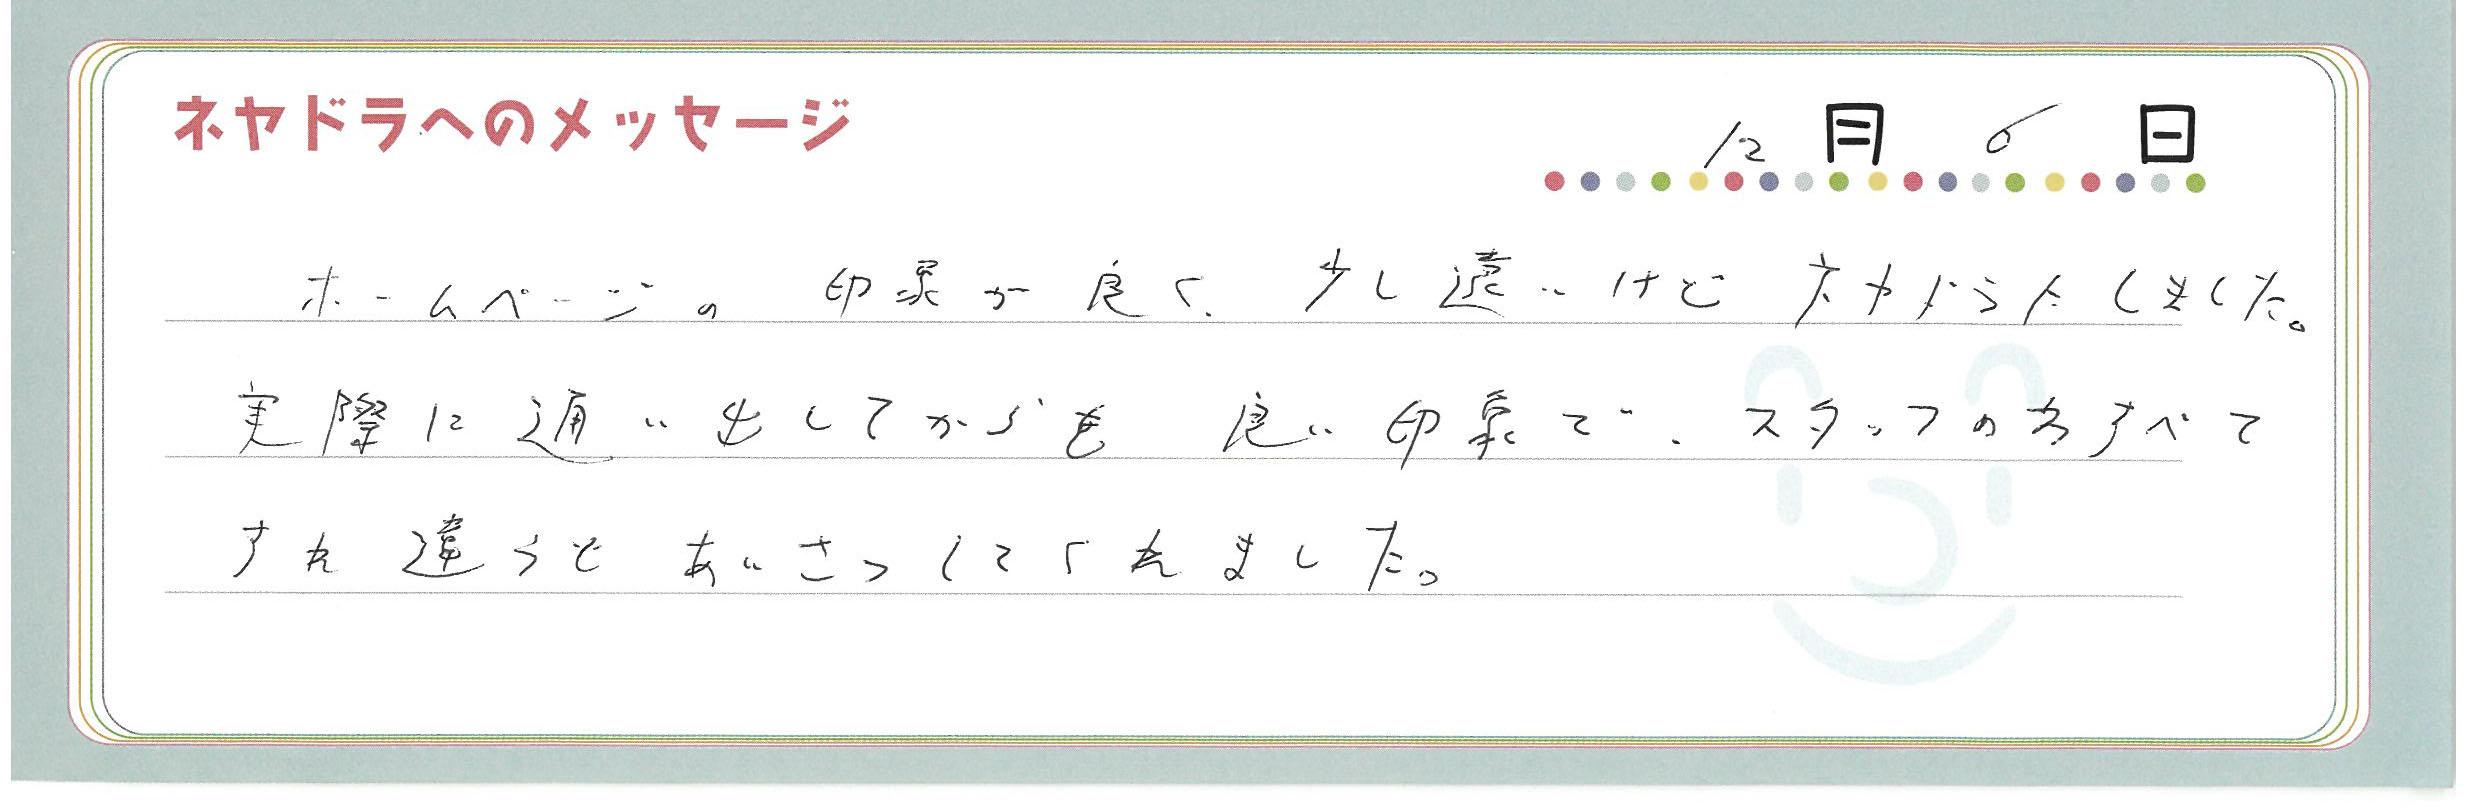 ネヤドラへのメッセージ
12月6日
ホームページの印象が良く、少し遠いけどネヤドラにしました。
実際に通い出してからも良い印象で、スタッフの方すべて
すれ違うとあいさつしてくれました。